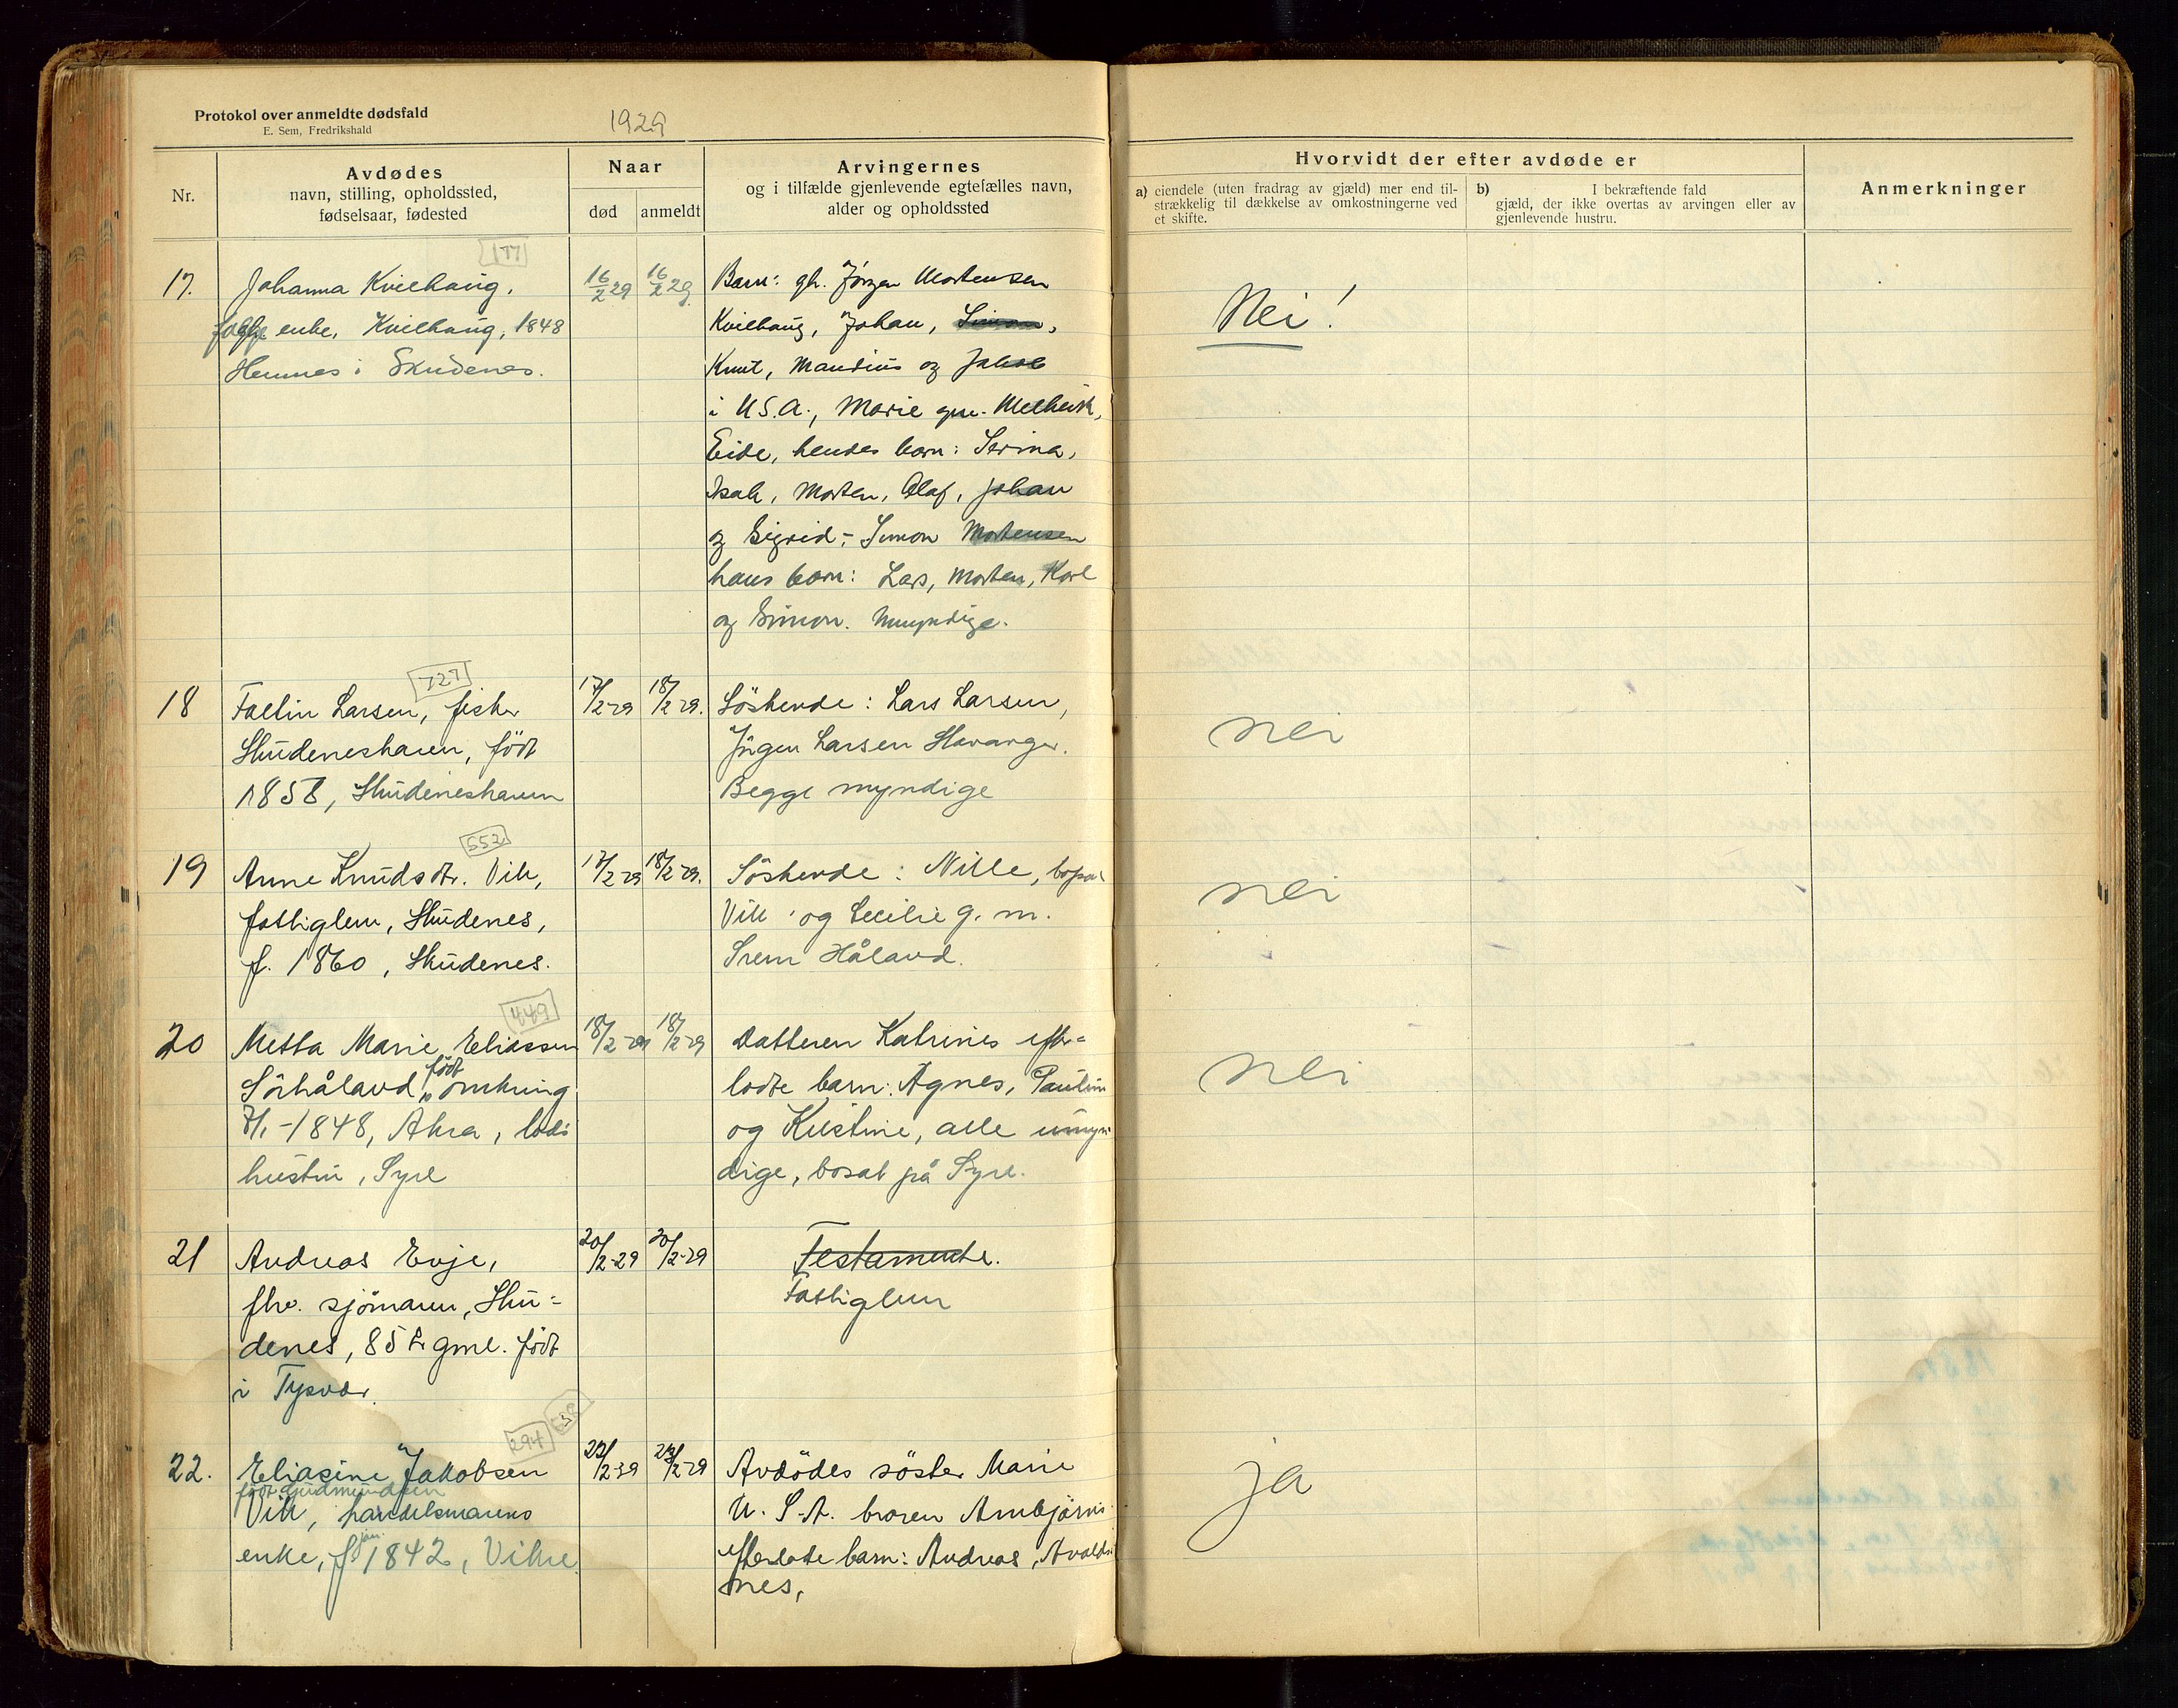 Protokol over anmeldte dødsfald
E. Sem, Fredrikshald
1929
Nr.
Avdødes
navn, stilling, opholdssted,
fødselsaar, fødested
Naar
død
anmeldt
Arvingernes
og i tilfælde gjenlevende egtefælles navn,
alder og opholdssted
Hvorvidt der efter avdøde er
a) eiendele (uten fradrag av gjæld) mer end til-
strækkelig til dækkelse av omkostningerne ved
et skifte.
b) I bekræftende fald
gjæld, der ikke overtas av arvingen eller av
gjenlevende hustru.
Anmerkninger
177
17.
Johanna Kvilhaug,
enke, Kvilhaug, 1848
Hemnes i Skudenes.
16/2 29
16/2 29
Barn: gb. Jørgen Mortensen
Kvilhaug, Johan, Simon,
Knut, Mandius og Jakob
i U.S.A., Marie gm. Melkevik,
Eide, hendes barn: Serina,
Isak, Morten, Olaf, Johan
og Sigrid; Simon Mortensen
hans barn: Lars, Morten, Karl
og Simon. Umyndige.
Nei!
727
18
Faltin Larsen, fisker
Skudeneshavn, født
1858, Skudeneshavn
17/2-29
18/2-29.
Söskende: Lars Larsen,
Jörgen Larsen Stavanger.
Begge myndige
nei
552
19
Anne Knudsdtr. Vik,
fattiglem, Skudenes,
f. 1860, Skudenes.
17/2-29
18/2-29.
Söskende: Nille, bosat
Vik og Cecilie g. m.
Srem Håland.
nei
449
20
Metta Marie Eliassen
Sörhåland, omkring
født
7/1-1848, Akra, lods
hustru, Syre
18/2-29
18/2-29
Datteren Katrines efter-
lodte barn: Agnes, Pauline
og Kristine, alle umyn
dige, bosat på Syre.
nei
21
Andreas Evje,
fhv. sjömann, Sku-
denes, 85 år gml. født
i Tysvær.
20/2-29
20/2-29
Testamente.
Fattiglem
294
638
22.
Eliasine Jakobsen
født Gudmundsen
Vik, handelsmanns
enke, f. jan. 1842, Vikre
22/2-29
23/2-29
Avdödes söster Marie
U.S.A. broren Arnbjörns
efterlatte barn: Andreas, Avalds
nes,
ja